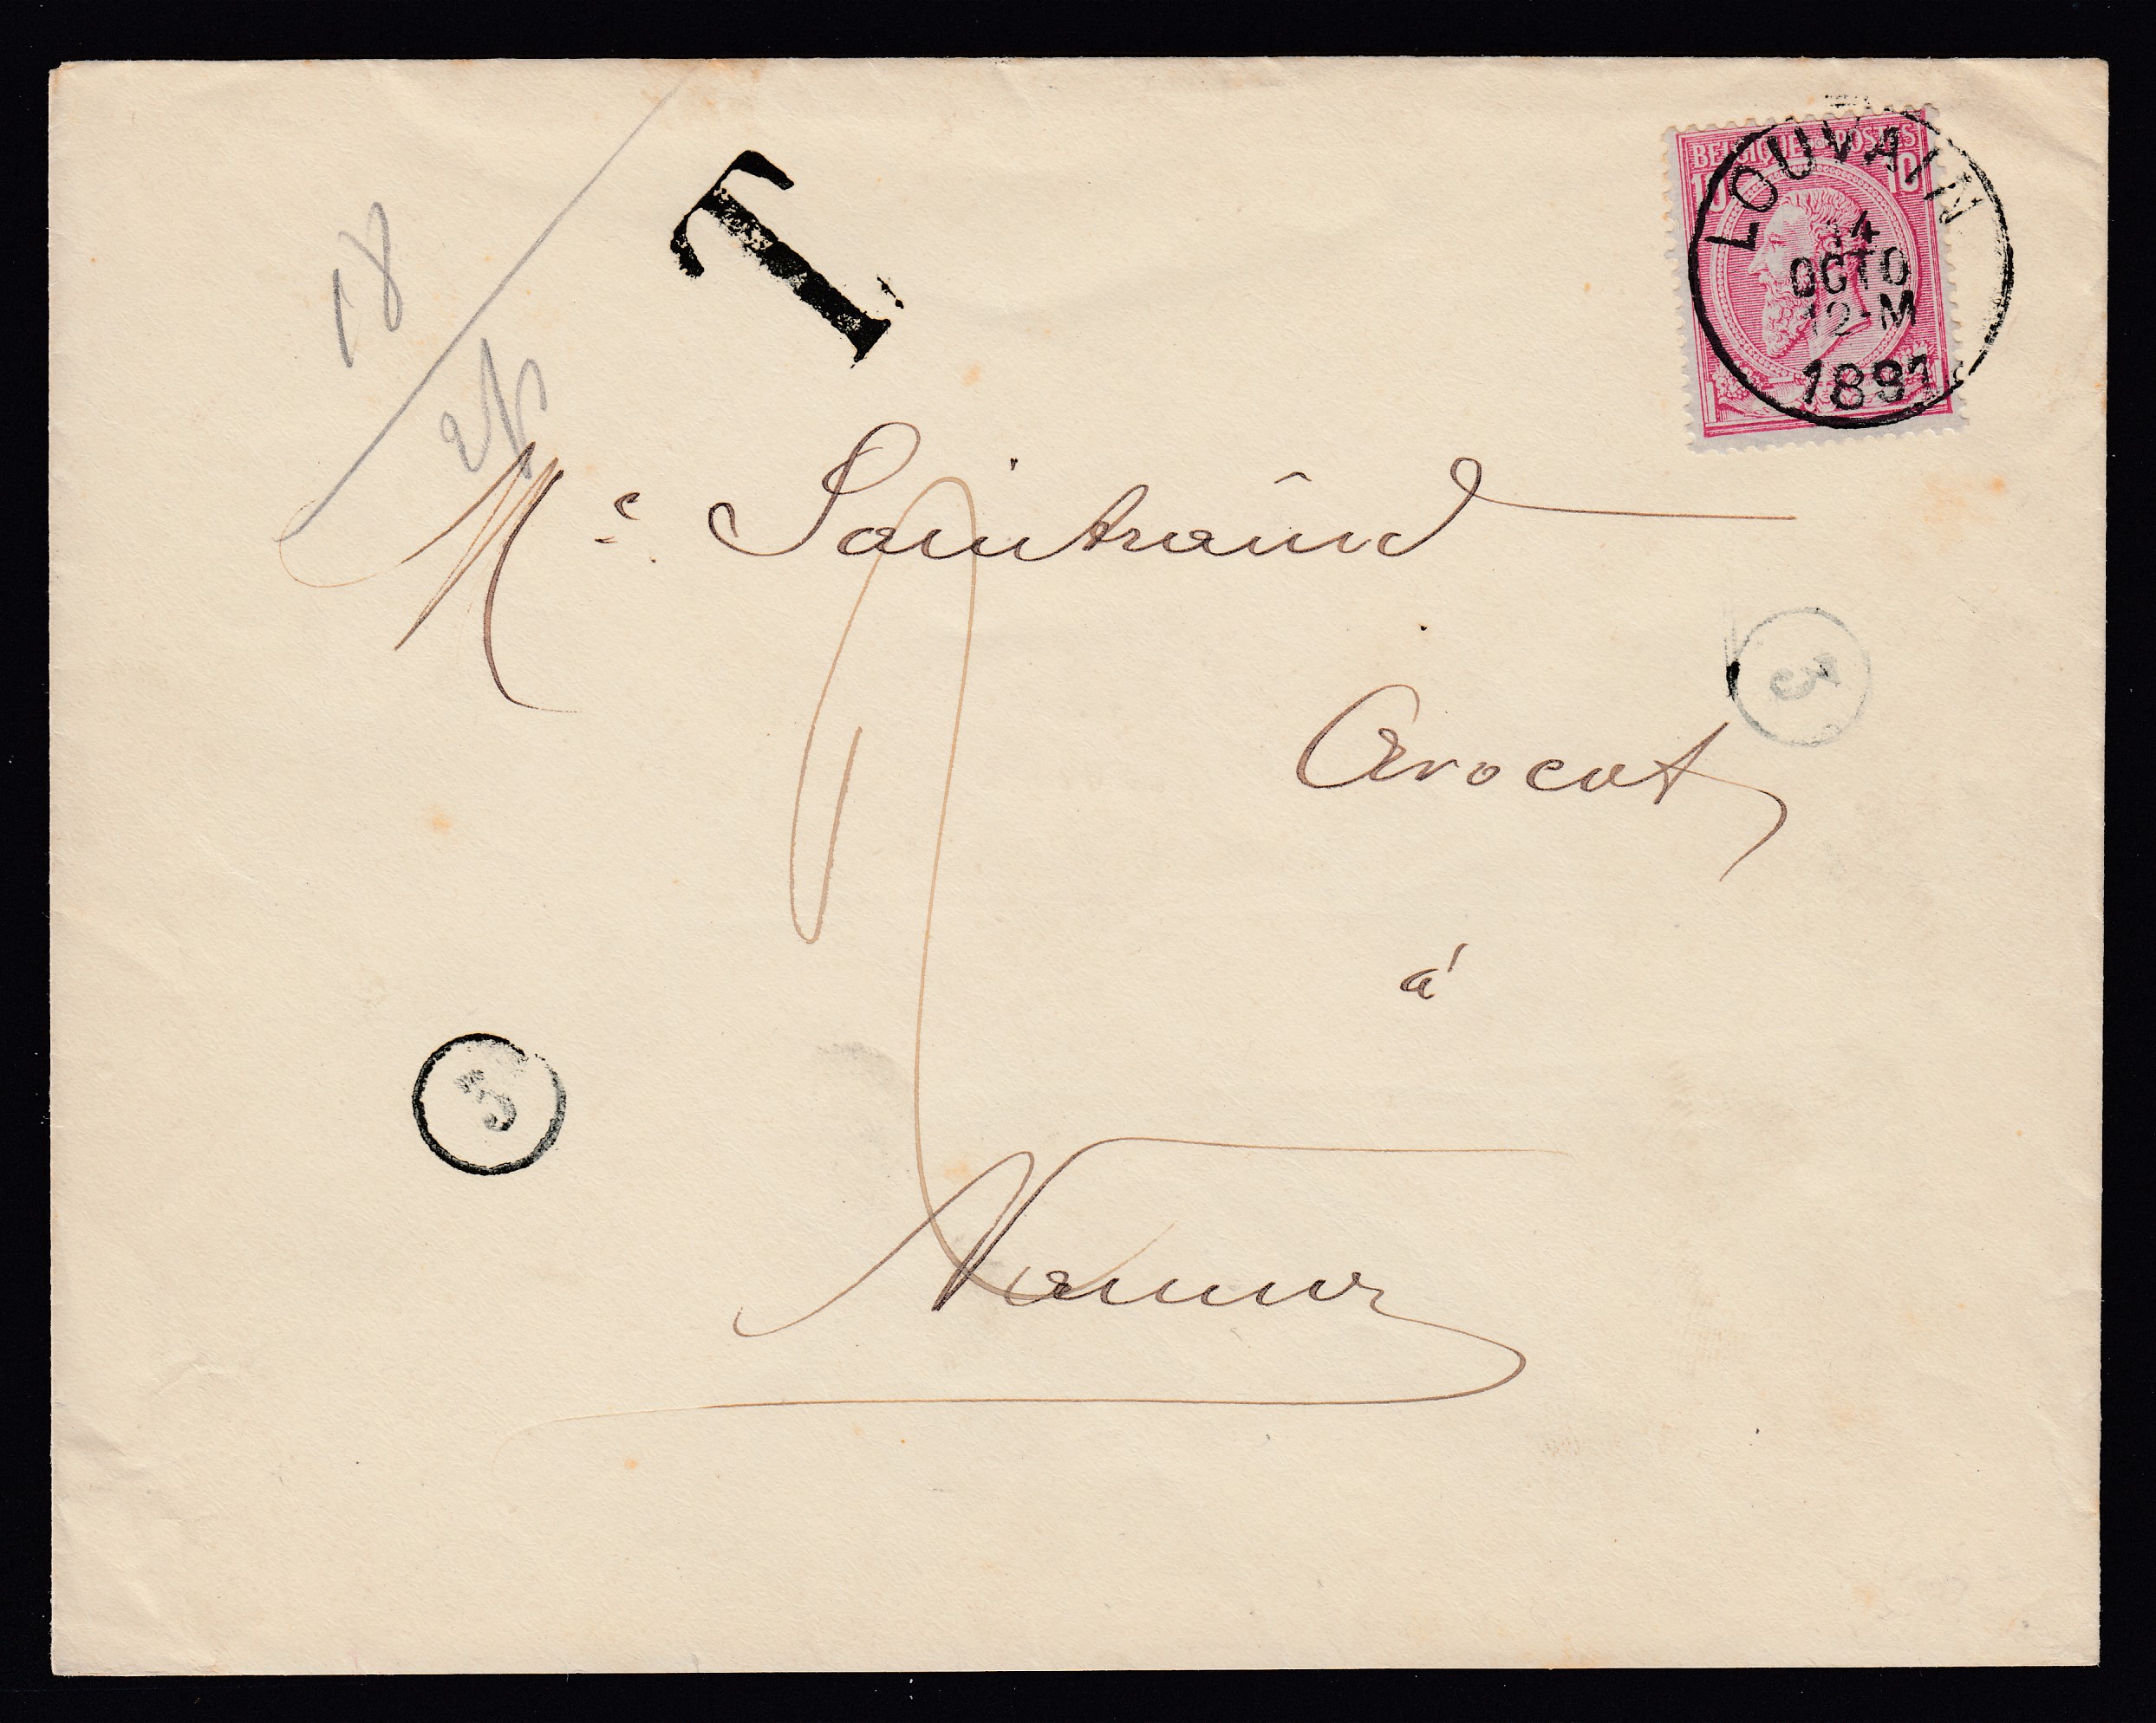 T
BELGIQUE POSTES
10 10
LOUVAIN
14
OCTO
12-M
1891
18
Me Saintraint
Avocat
à
Namur